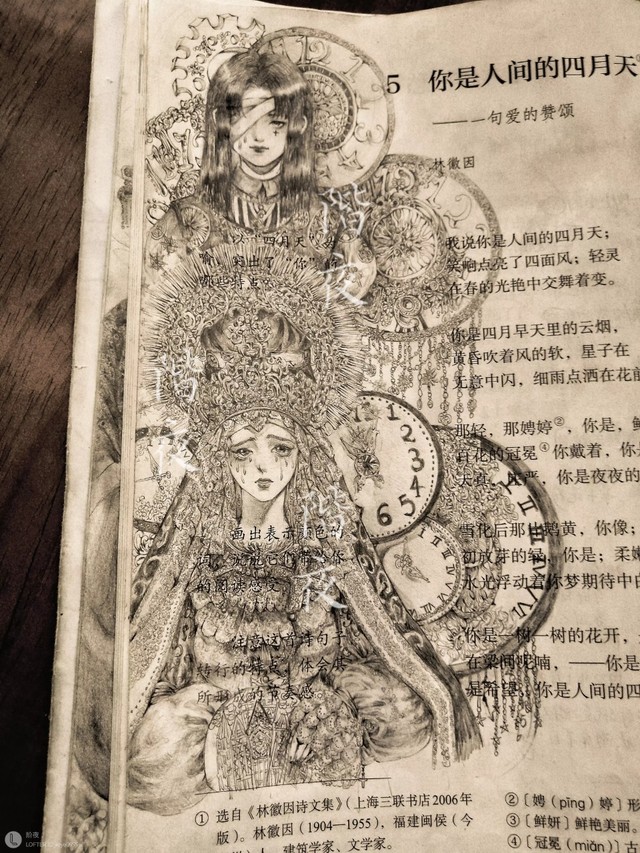 5 你是人间的四月天
———一句爱的赞颂
林徽因
我说你是人间的四月天；
笑响点亮了四面风；轻灵
在春的光艳中交舞着变。
你是四月早天里的云烟，
黄昏吹着风的软，星子在
无意中闪，细雨点洒在花前
那轻，那娉婷②，你是，鲜
百花的冠冕④你戴着，你是
天真，庄严，你是夜夜的
雪化后那片鹅黄，你像；
初放芽的绿，你是；柔嫩
水光浮动着你梦期待中的
你是一树一树的花开，
在梁间呢喃，——你是
是希望，你是人间的四
以“四月天”
突出了“你”的
哪些特点
画出表示颜色的
的阅读感受
注意这首诗句子
转行的特点，体会其
所形成的节奏感
階夜
階夜
階夜
① 选自《林徽因诗文集》（上海三联书店2006年
版）。林徽因（1904—1955），福建闽侯（今
人，建筑学家、文学家。
②〔娉（pīng）婷〕形
③〔鲜妍〕鲜艳美丽。
④〔冠冕（miǎn）〕古
12
1
2
3
4
5
6
7